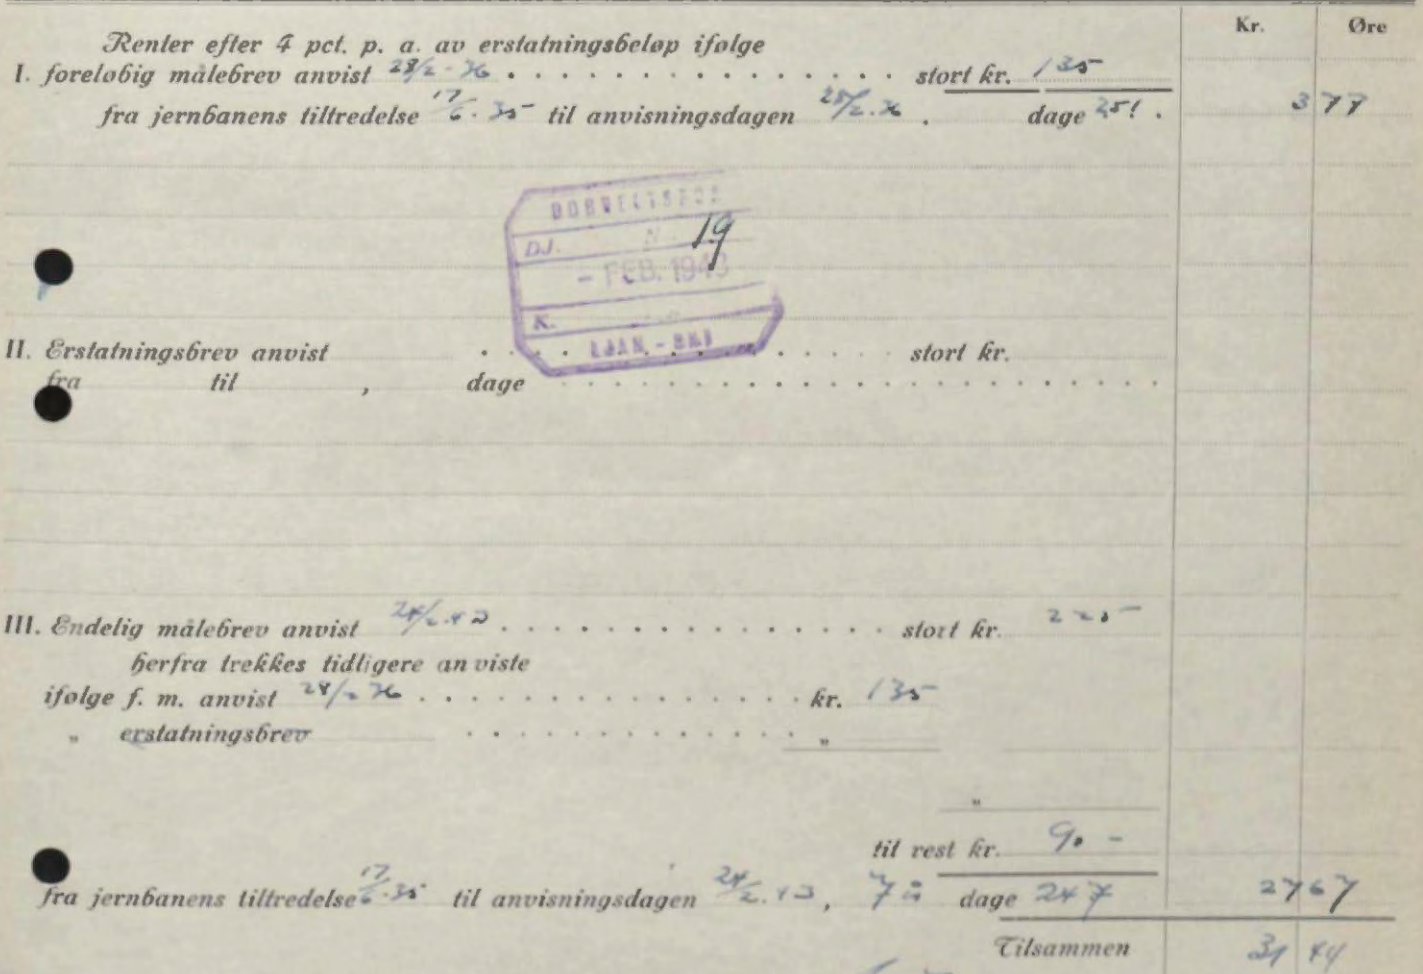 Kr. Øre
Renter efter 4 pct. p. a. av erstatningsbeløp ifølge
I. foreløbig målebrev anvist 28/2-36 stort kr. 135
fra jernbanens tiltredelse 17/6.35 til anvisningsdagen 28/2.36 . dage 251 . 3 77
DJ. N. 19
- FEB. 1943
K.
LJAN - SKI
II. Erstatningsbrev anvist stort kr.
fra til , dage
III. Endelig målebrev anvist 24/2.43 stort kr. 225
herfra trekkes tidligere anviste
ifølge f. m. anvist 28/2 36 kr. 135
„ erstatningsbrev „
„
til rest kr. 90 -
fra jernbanens tiltredelse 17/6.35 til anvisningsdagen 24/2.43, 7 å dage 247 27 67
Tilsammen 31 44